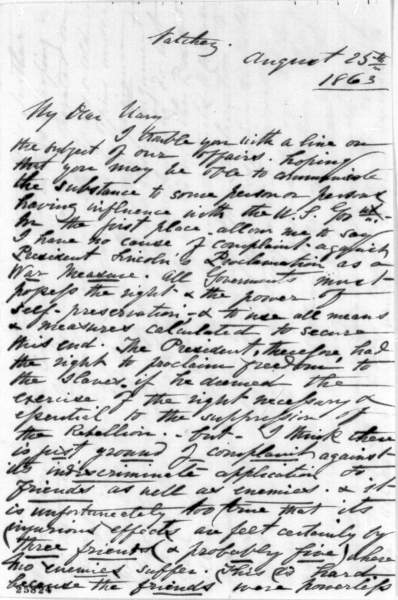 Natchez.
August 25th
1863
My Dear Mary
I trouble you with a line on
the subject of our affairs. hoping
that you may be able to communicate
the substance to some person or persons
having influence with the U.S. Govt.
In the first place, allow me to say
I have no cause of complaint against
President Lincoln's Proclamation as a
War Measure. All Goverments must
possess the right & the power of
Self-preservation, & to use all means
& measures calculated to secure
this end. The President, therefore, had
the right to proclaim freedom to
the slaves, if he deemed the
exercise of the right necessary &
essential to the suppression of
the Rebellion.. but. I think there
is just ground of complaint against
its indiscriminate application to
friends as well as enemies. & it
is unfortunately too true that its
injurious effects are felt certainly by
(three friends (& probably five) where
two enemies suffer. (This is hard
because the friends were powerless
25824